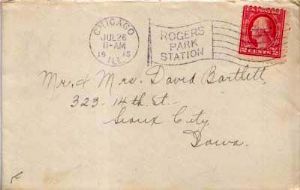 CHICAGO
JUL 26
11-AM
19 15
ILL.
ROGERS
PARK
STATION
CENTS
Mr. & Mrs. David Bartlett
323-14th St-
Sioux City
Iowa.